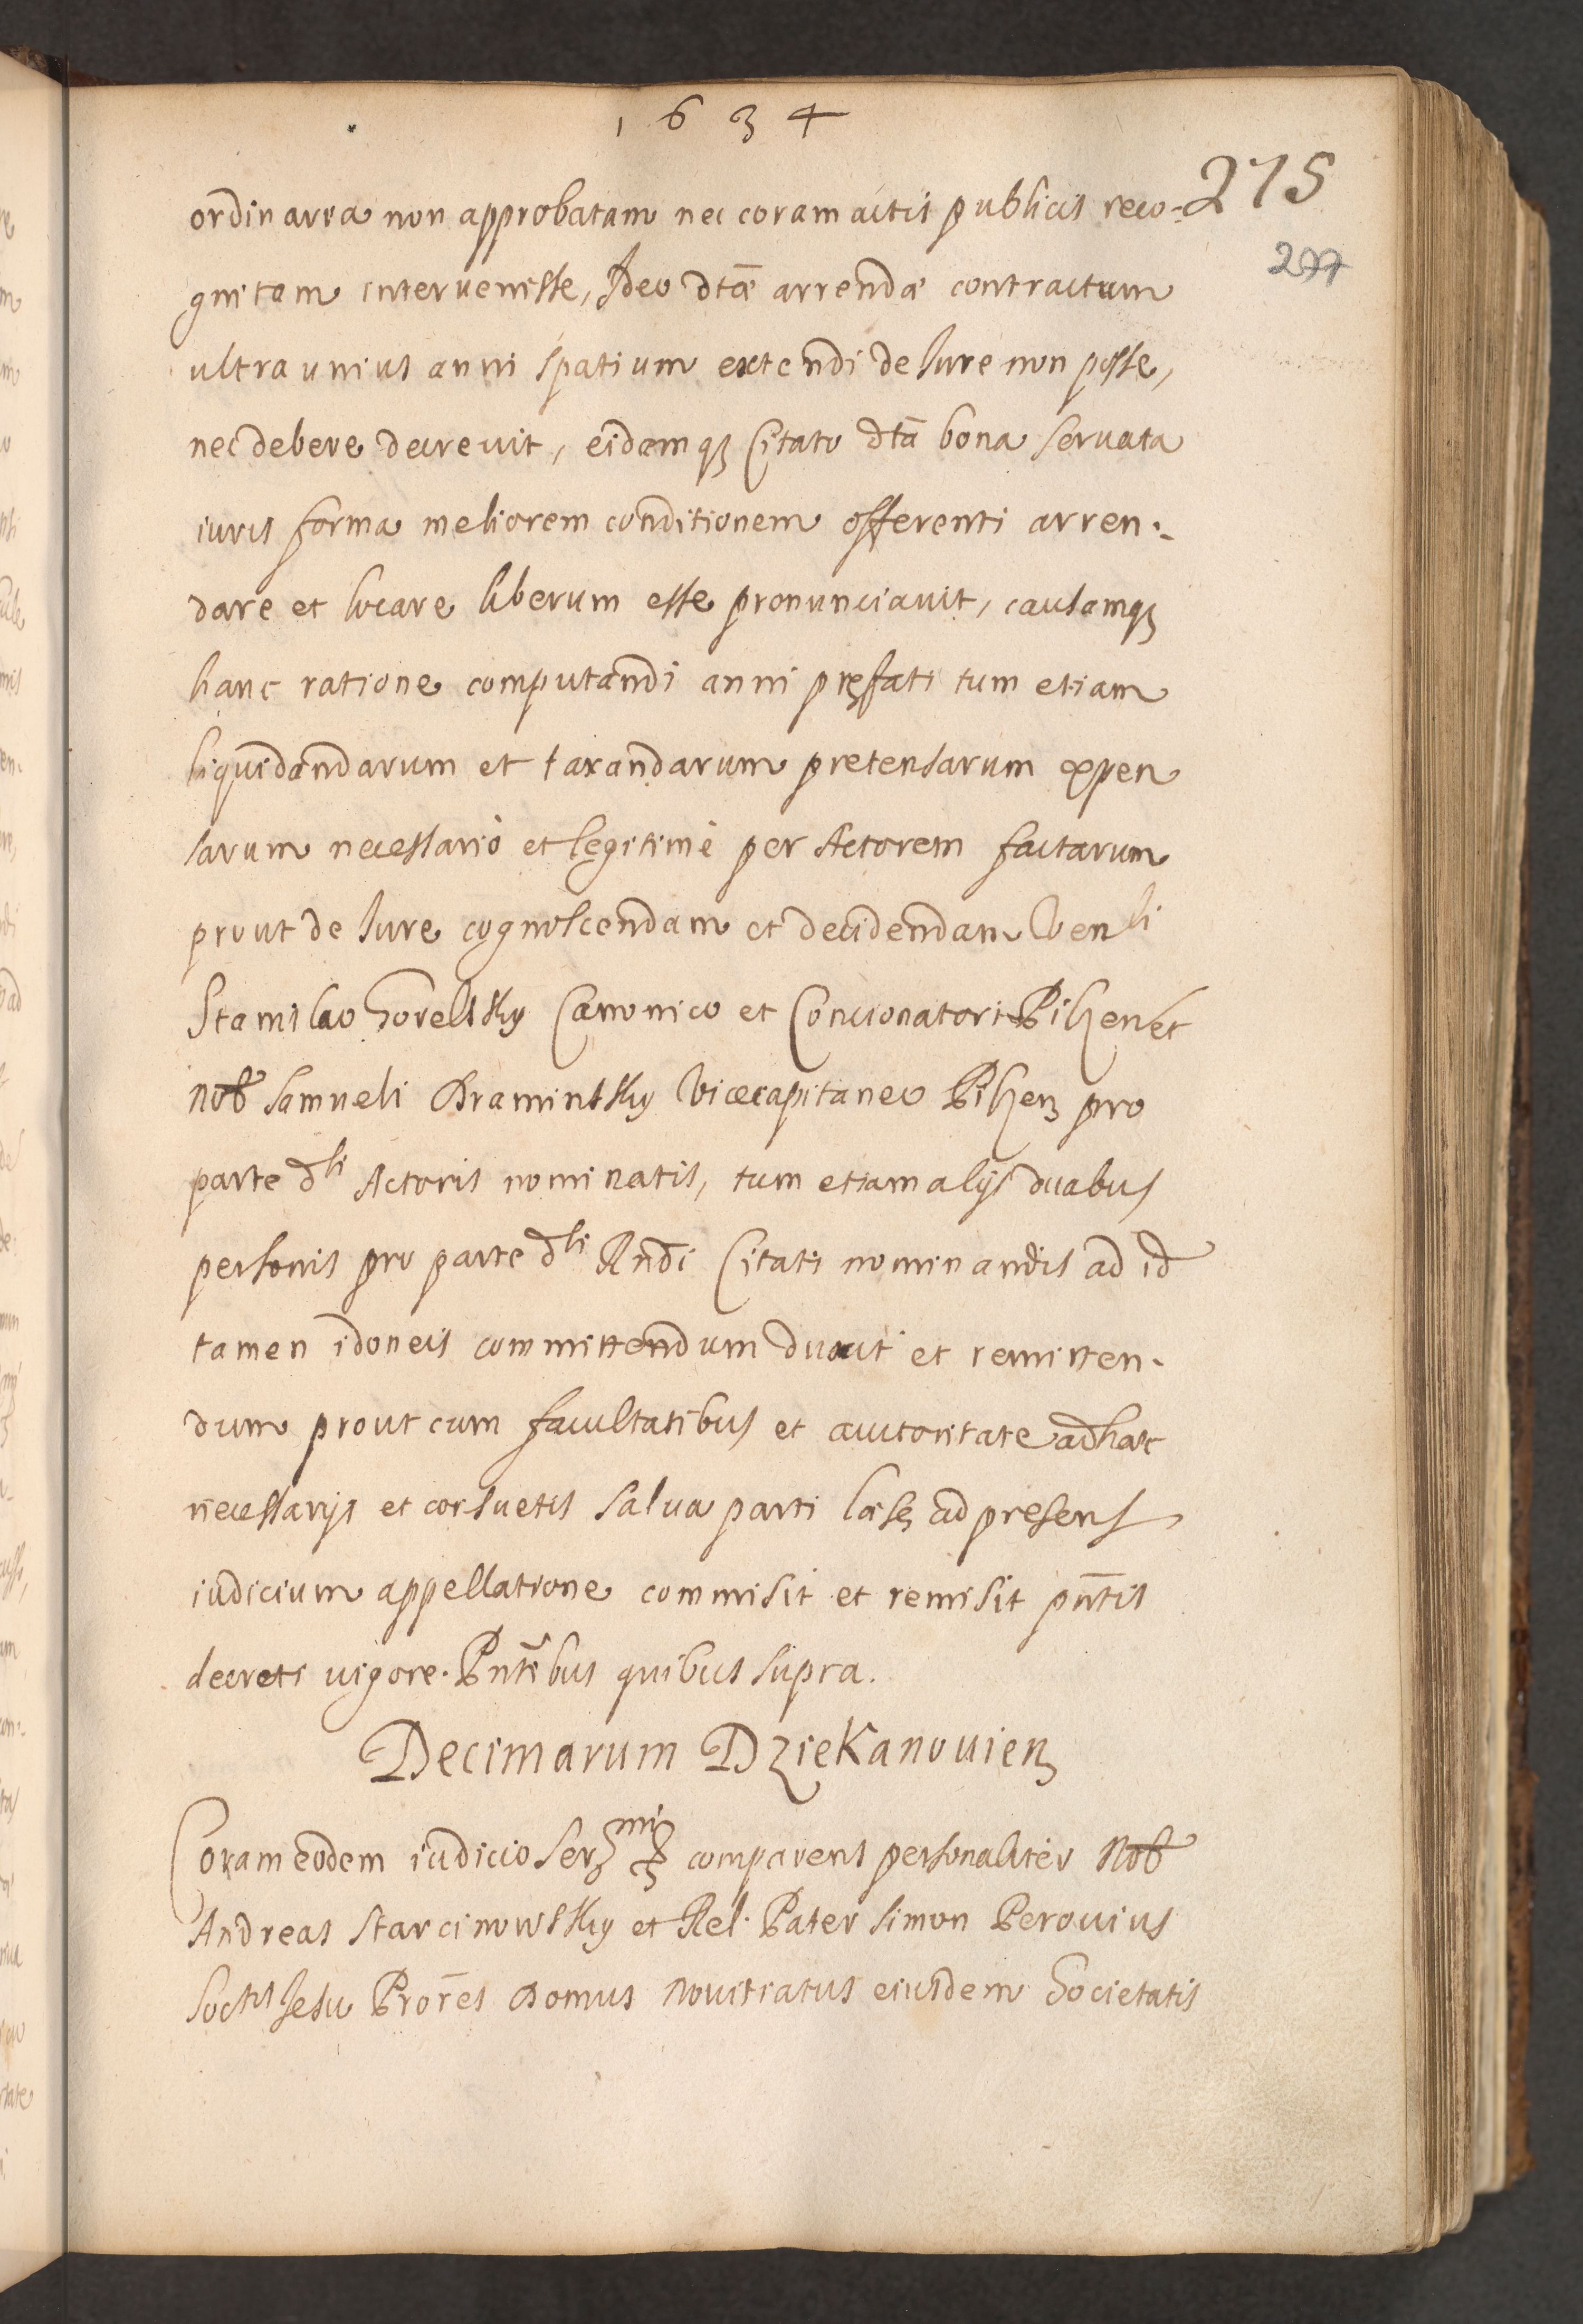 1634
275
277
ordinaria non approbatam nec coram actis publicis reco-
gnitam intervenisse, Ideo dtæ arrendæ contractum
ultra unius anni spatium extendi de Iure non posse,
nec debere decrevit, eidemq3 Citato dta bona servata
iuris forma meliorem conditionem offerenti arren-
dare et locare liberum esse pronunciavit, causamq3
hanc ratione computandi anni pręfati tum etiam
liquidandarum et taxandarum pretensarum expen
sarum necessariò et legitimè per Actorem factarum
prout de Iure cognoscendam et decidendam Venli
Stanislao Gorelsky Canonico et Concionatori Pilzen et
Nob Samueli Draminsky Vicecapitaneo Pilzen pro
parte dli Actoris nominatis, tum etiam alijs duabus
personis pro parte dli Rndi Citati nominandis ad id
tamen idoneis committendum duxit et remitten-
dum prout cum facultatibus et auctoritate ad hæc
necessarijs et consuetis salva parti læsę ad presens
iudicium appellatione commisit et remisit pntis
decreti vigore. Pntibus quibus supra.
Decimarum Dziekanovien
Coram eodem iudicio Ser comparens personaliter Nob
Andreas Starcinowsky et Rel. Pater Simon Perovius
Soctis Iesu Prores Domus Novitiatus eiusdem Societatis